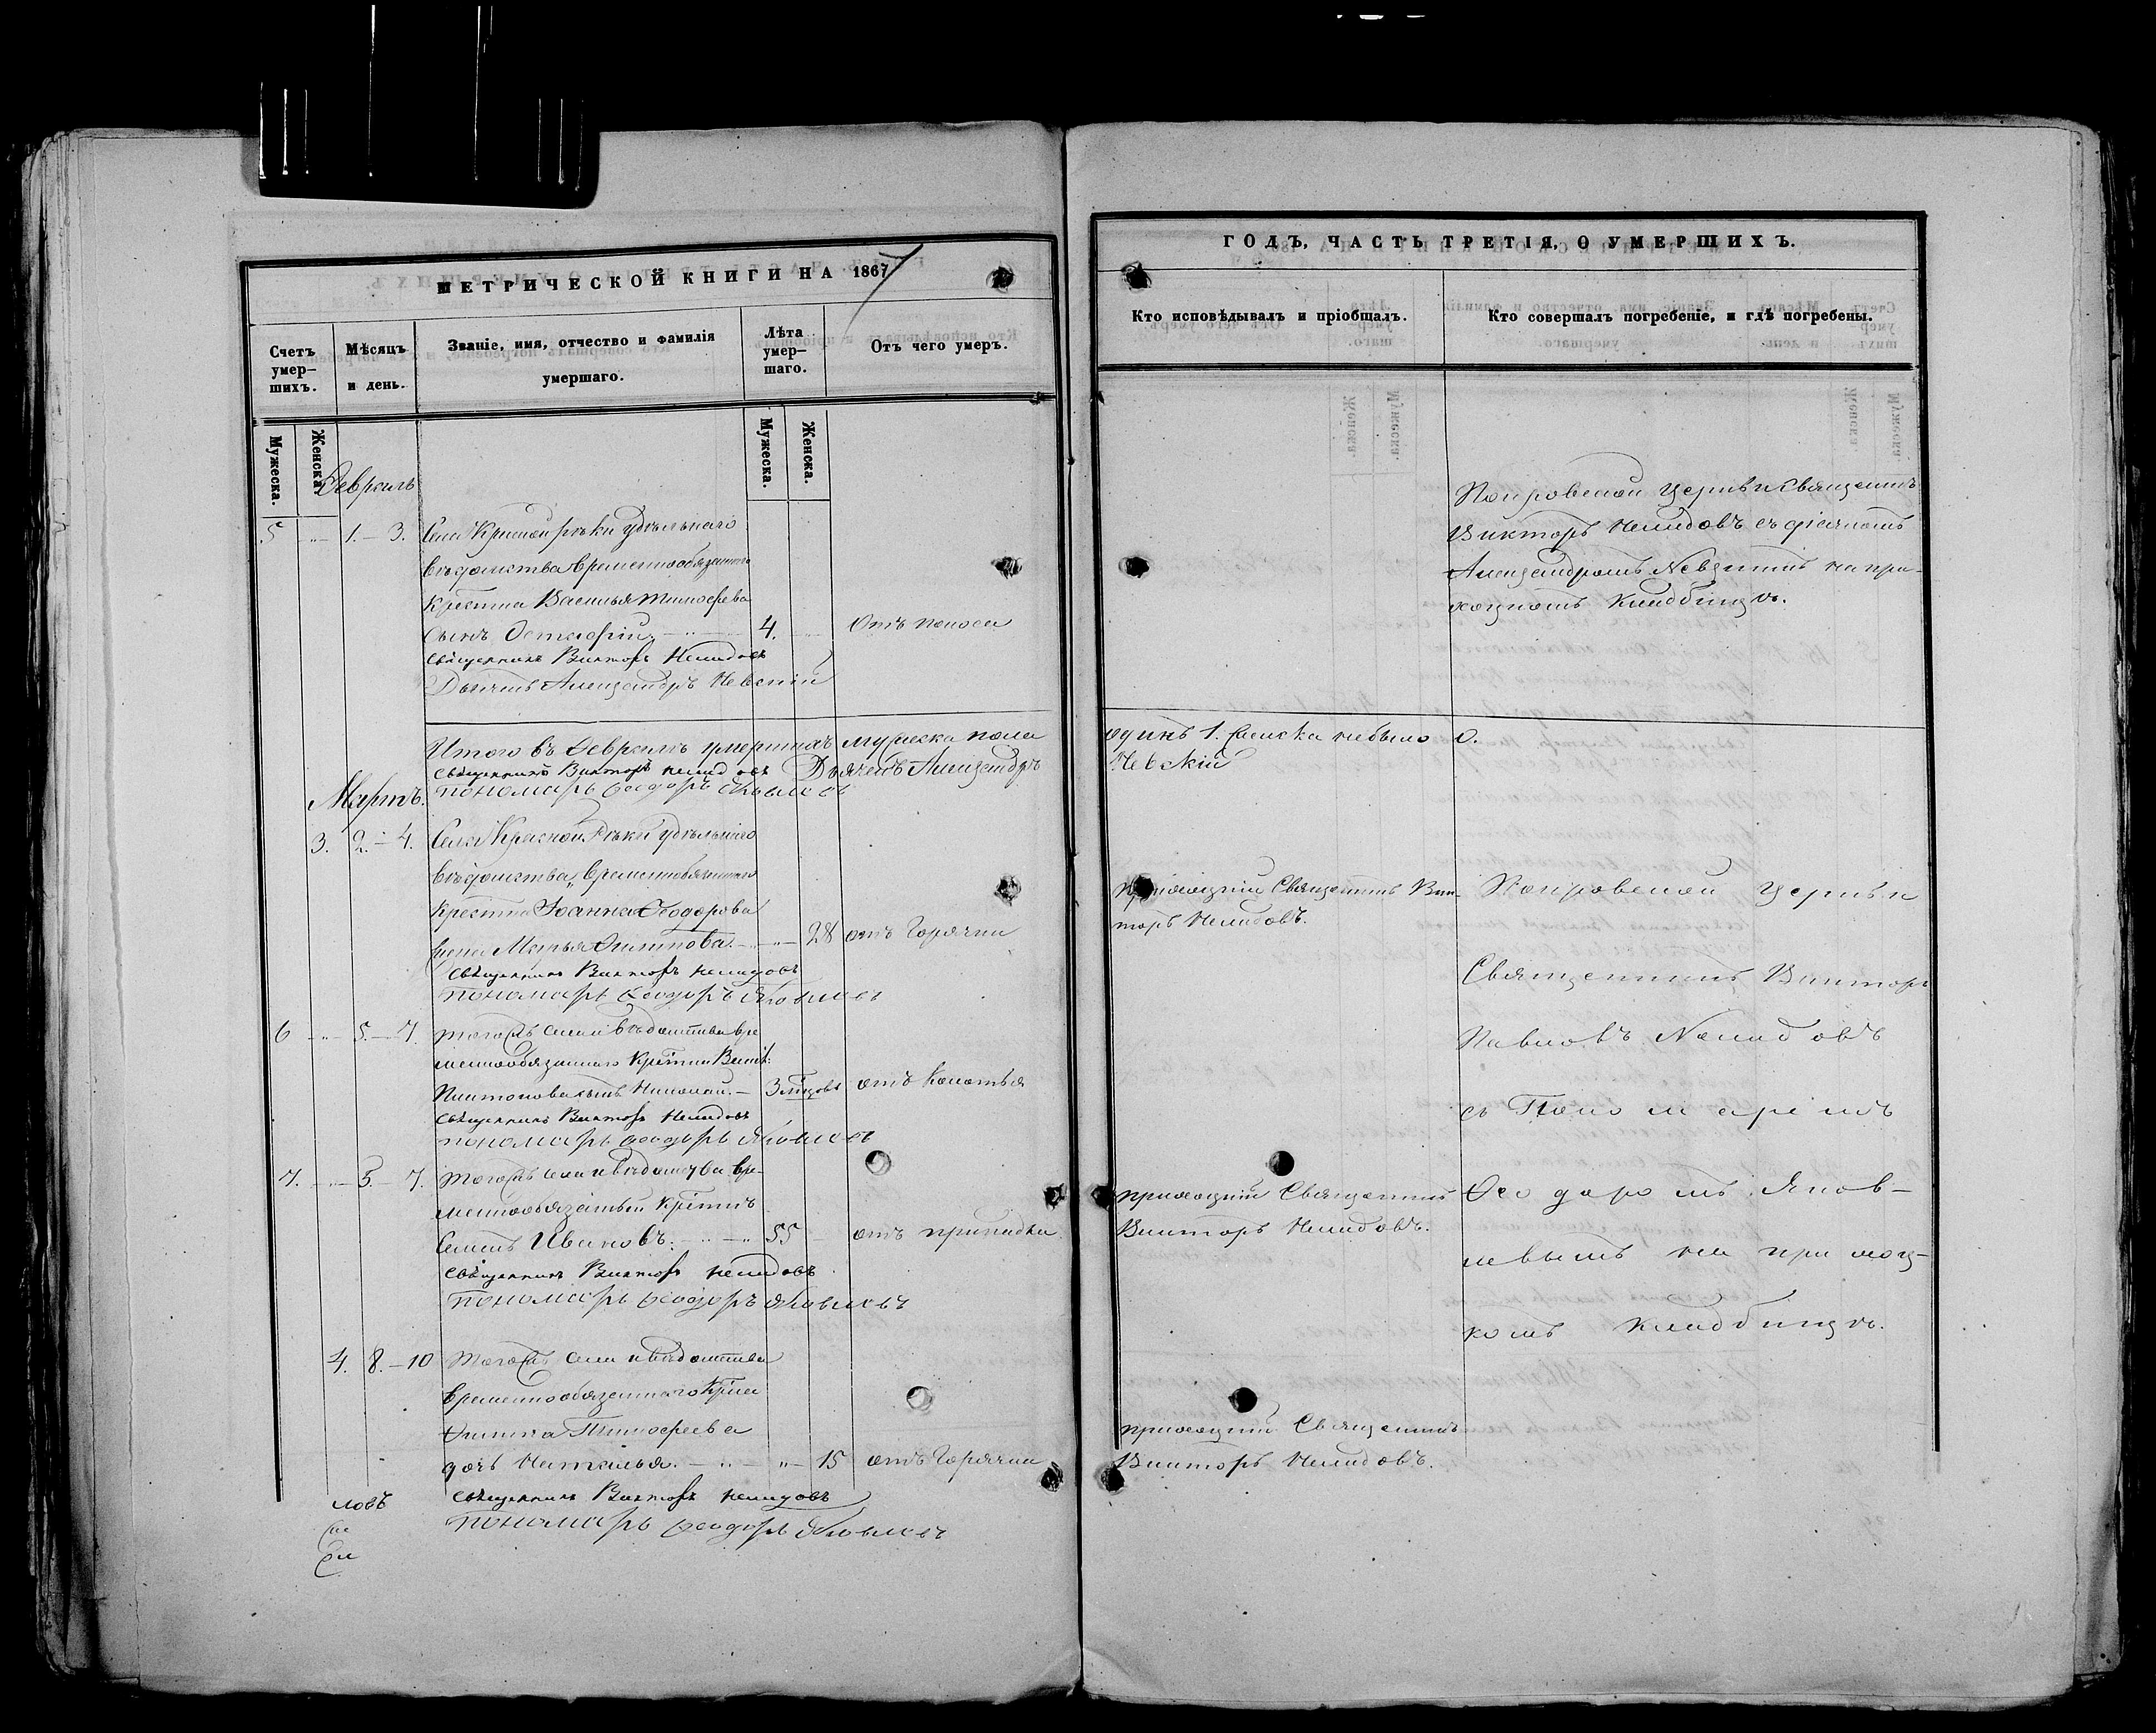 МЕТРИЧЕСКОЙ КНИГИ НА 1867
Счетъ умер-шихъ.
Мѣсяцъ и день.
Званіе, имя, отчество и фамилія умершаго.
Лѣта умер-шаго.
Отъ чего умеръ.
Мужеска.
Женска.
Мужеска.
Женска.
Февраль
5 1. – 3. Села Красной рѣки удѣльнаго
вѣдомства временнообязаннаго
крестьянина Василья Тимофеева
сынъ Остафій. 4. отъ поноса
Священникъ Викторъ Нелидовъ
Дьячекъ Александръ Невскій
Итого въ Февралѣ умершихъ мужеска пола
Священникъ Викторъ Нелидовъ Дьячекъ Александръ
Пономарь Феодоръ
Мартъ.
3. 2. – 4. Села Красной Рѣки удѣльнаго
вѣдомства временнообязаннаго
Іоанна Феодорова
жена Марья Филипова. 28 отъ Горячки
Священникъ Викторъ Нелидовъ
Пономарь Феодоръ
6 5. – 7. Тогожъ села и вѣдомства вре
меннообязаннаго
Платонова сынъ Николай. – 3 мѣсяцовъ отъ Колотья
Священникъ Викторъ Нелидовъ
Пономарь Феодоръ
7. 5. – 7. Тогожъ села и вѣдомства вре-
меннообязанный
Семенъ Ивановъ. 55 отъ припадка
Священникъ Викторъ Нелидовъ
Пономарь Феодоръ
4. 8. – 10 Тогожъ села и вѣдомства
временнообязаннаго
Филипа Тимофеева
дочь Наталья. 15 отъ Горячки
Священникъ Викторъ Нелидовъ
Пономарь Феодоръ
ловъ
ГОДЪ, ЧАСТЬ ТРЕТІЯ, О УМЕРШИХЪ.
Кто исповѣдывалъ и пріобщалъ.
Кто совершалъ погребеніе, и гдѣ погребены.
Покровской церкви Священникъ
Викторъ Нелидовъ съ дьячкомъ
Александромъ Невскимъ на при-
ходскомъ кладбищѣ.
одинъ 1. женска небыло 0.
Невскій
приходскій Священникъ Вик-
торъ Нелидовъ.
Покровской церкви
Священникъ Викторъ
Павловъ Нелидовъ
съ Пономаремъ
приходскій Священникъ
Викторъ Нелидовъ.
Феодоромъ Яков-
левымъ на приход-
комъ кладбищѣ.
приходскій Священникъ
Викторъ Нелидовъ.